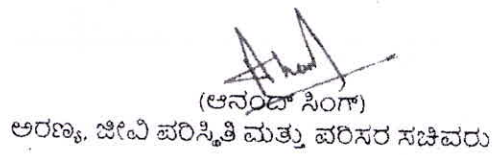 (ಆನಂದ್ ಸಿಂಗ್)
ಅರಣ್ಯ, ಜೀವಿ ಪರಿಸ್ಥಿತಿ ಮತ್ತು ಪರಿಸರ ಸಚಿವರು